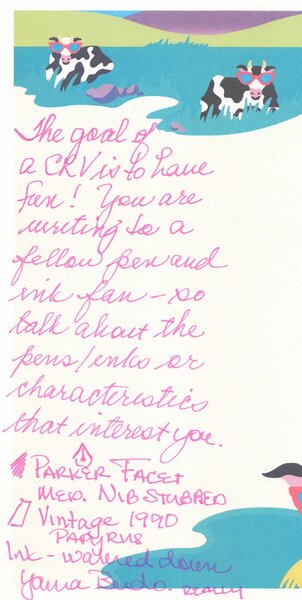 The goal of
a CRV is to have
fun! You are
writing to a
fellow pen and
ink fan - so
talk about the
pens/inks or
characteristics
that interest you.
PARKER FACET
MED. NIB STUBBED
Vintage 1990
PAPYRUS
Ink - watered down
Yama Budo. REALLY